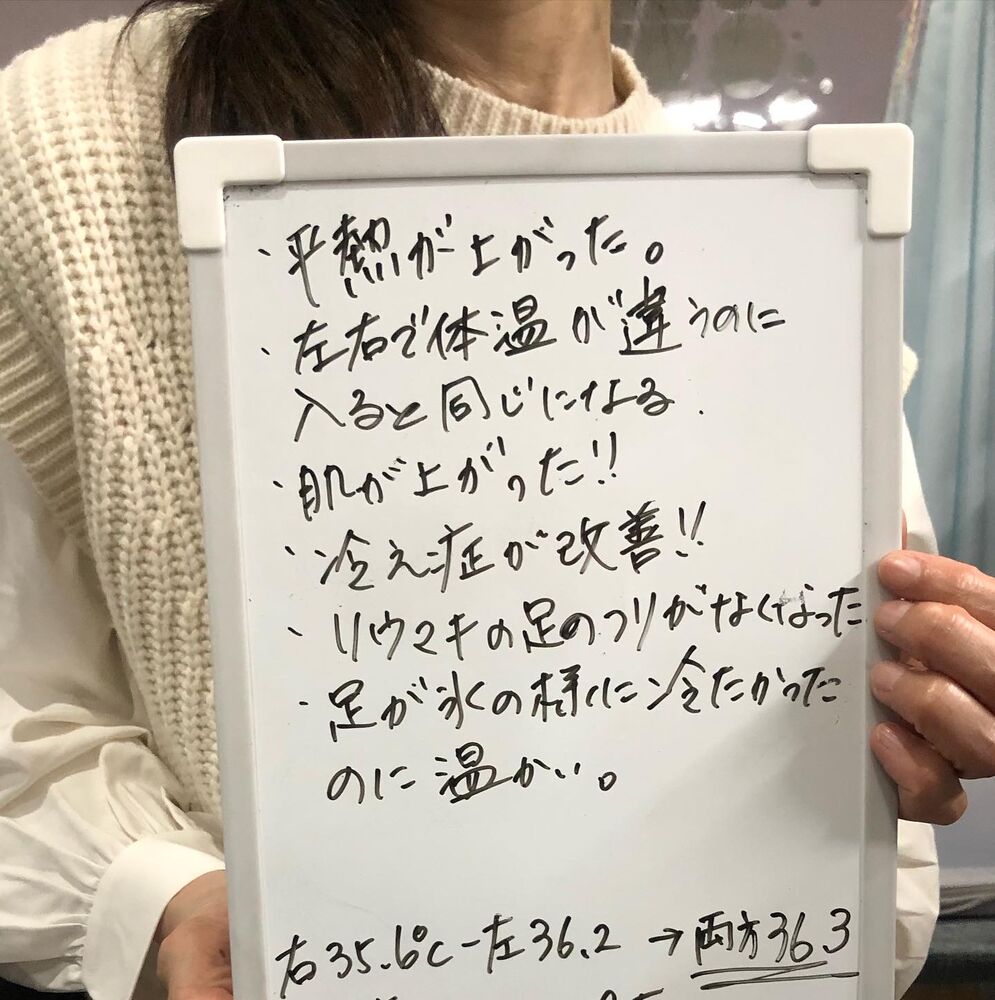 ・平熱が上がった。
・左右で体温が違うのに
入ると同じになる.
・肌が上がった!!
・冷え症が改善!!
・リウマチの足のつりがなくなった
・足が氷の様に冷たかった
のに温かい。
右35.6℃-左36.2→両方36.3